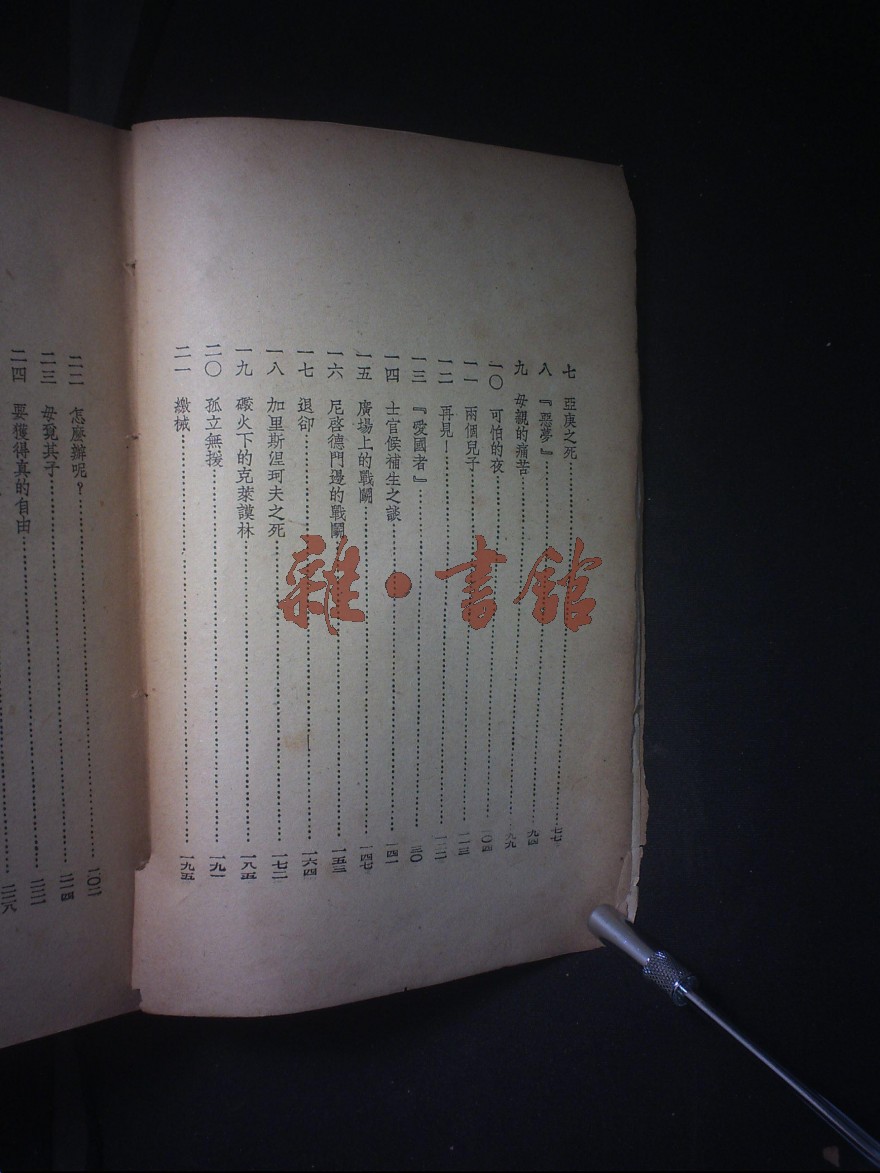 七 亞庚之死 七七
八 『惡夢』 九四
九 母親的痛苦 九九
一〇 可怕的夜 一〇四
一一 兩個兒子 一一三
一二 再見! 一二二
一三 『愛國者』 一三〇
一四 士官候補生之談 一四一
一五 廣場上的戰鬭 一四七
一六 尼啓德門邊的戰鬭 一五三
一七 退卻 一六四
一八 加里斯涅珂夫之死 一七二
一九 礮火下的克萊謨林 一八五
二〇 孤立無援 一九一
二一 繳械 一九五
二二 怎麼辦呢?
二三 母覓其子 二一四
二四 要獲得真的自由
雜·書館